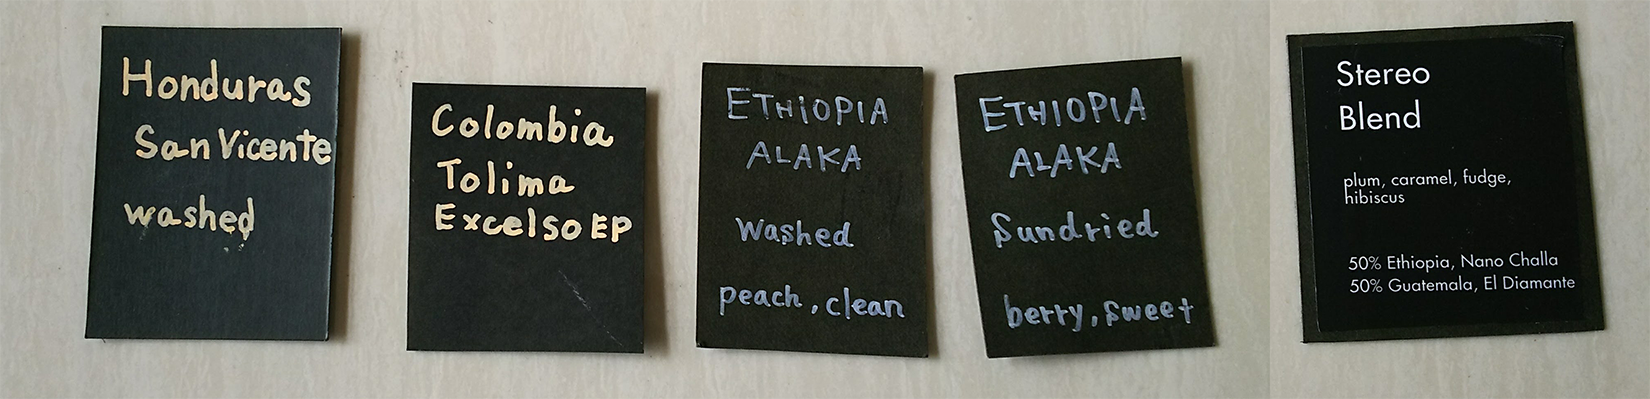 Honduras
San Vicente
washed
Colombia
Tolima
Excelso EP
ETHIOPIA
ALAKA
Washed
peach, clean
ETHIOPIA
ALAKA
Sundried
berry, sweet
Stereo
Blend
plum, caramel, fudge,
hibiscus
50% Ethiopia, Nano Challa
50% Guatemala, El Diamante